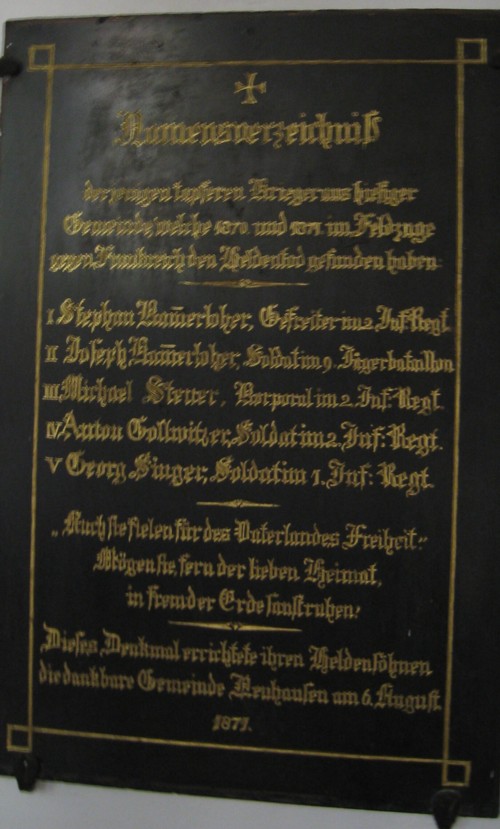 Namensverzeichniß
derjenigen tapferen Krieger aus hiesiger
Gemeinde, welche 1870 und 1871 im Feldzuge
gegen Frankreich den Heldentod gefunden haben:
I Stephan Kam̄erloher, Gefreiter im 2. Inf. Regt.
II Joseph Kam̄erloher, Soldat im 9. Jägerbataillon
III. Michael Steuer, Korporal im 2. Inf: Regt.
IV. Anton Gollwitzer, Soldat im 2. Inf: Regt.
V Georg Singer, Soldat im 1. Inf: Regt.
„Auch sie fielen für des Vaterlandes Freiheit:“
Mögen sie, fern der lieben Heimat,
in fremder Erde sanft ruhen!
Dieses Denkmal errichtete ihren Heldensöhnen
die dankbare Gemeinde Neuhausen am 6. August
1871.